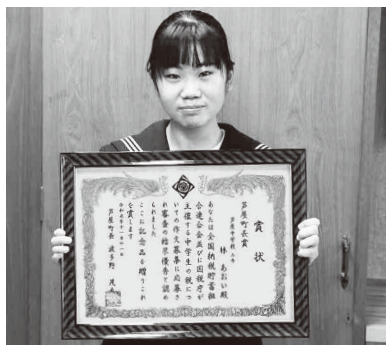 賞状
芦屋町長賞
芦屋中学校 三年
林 あおい殿
あなたは全国納税貯蓄組
合連合会並びに国税庁が
主催する中学生の税につ
いての作文募集に応募さ
れ審査の結果優秀と認め
られました
ここに記念品を贈りこれ
を賞します
芦屋町長 波多野 茂丸